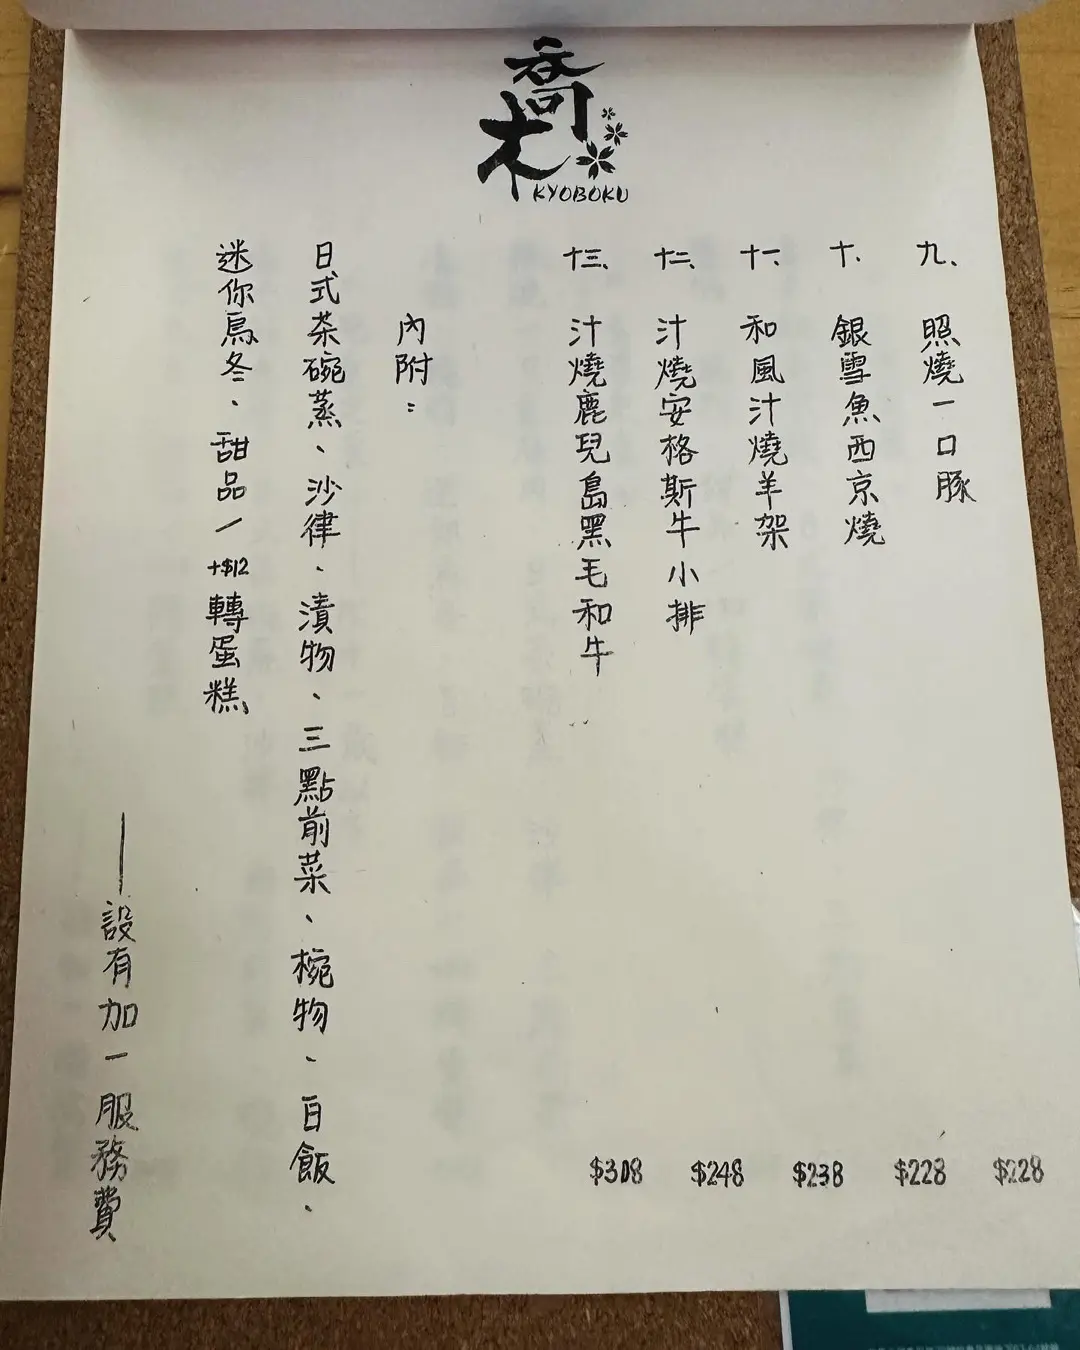 喬木
KYOBOKU
九、照燒一口豚 $228
十、銀雪魚西京燒 $228
十一、和風汁燒羊架 $238
十二、汁燒安格斯牛小排 $248
十三、汁燒鹿兒島黑毛和牛 $308
內附：
日式茶碗蒸、沙律、漬物、三點前菜、椀物、白飯、
迷你烏冬、甜品／+$12轉蛋糕
——設有加一服務費